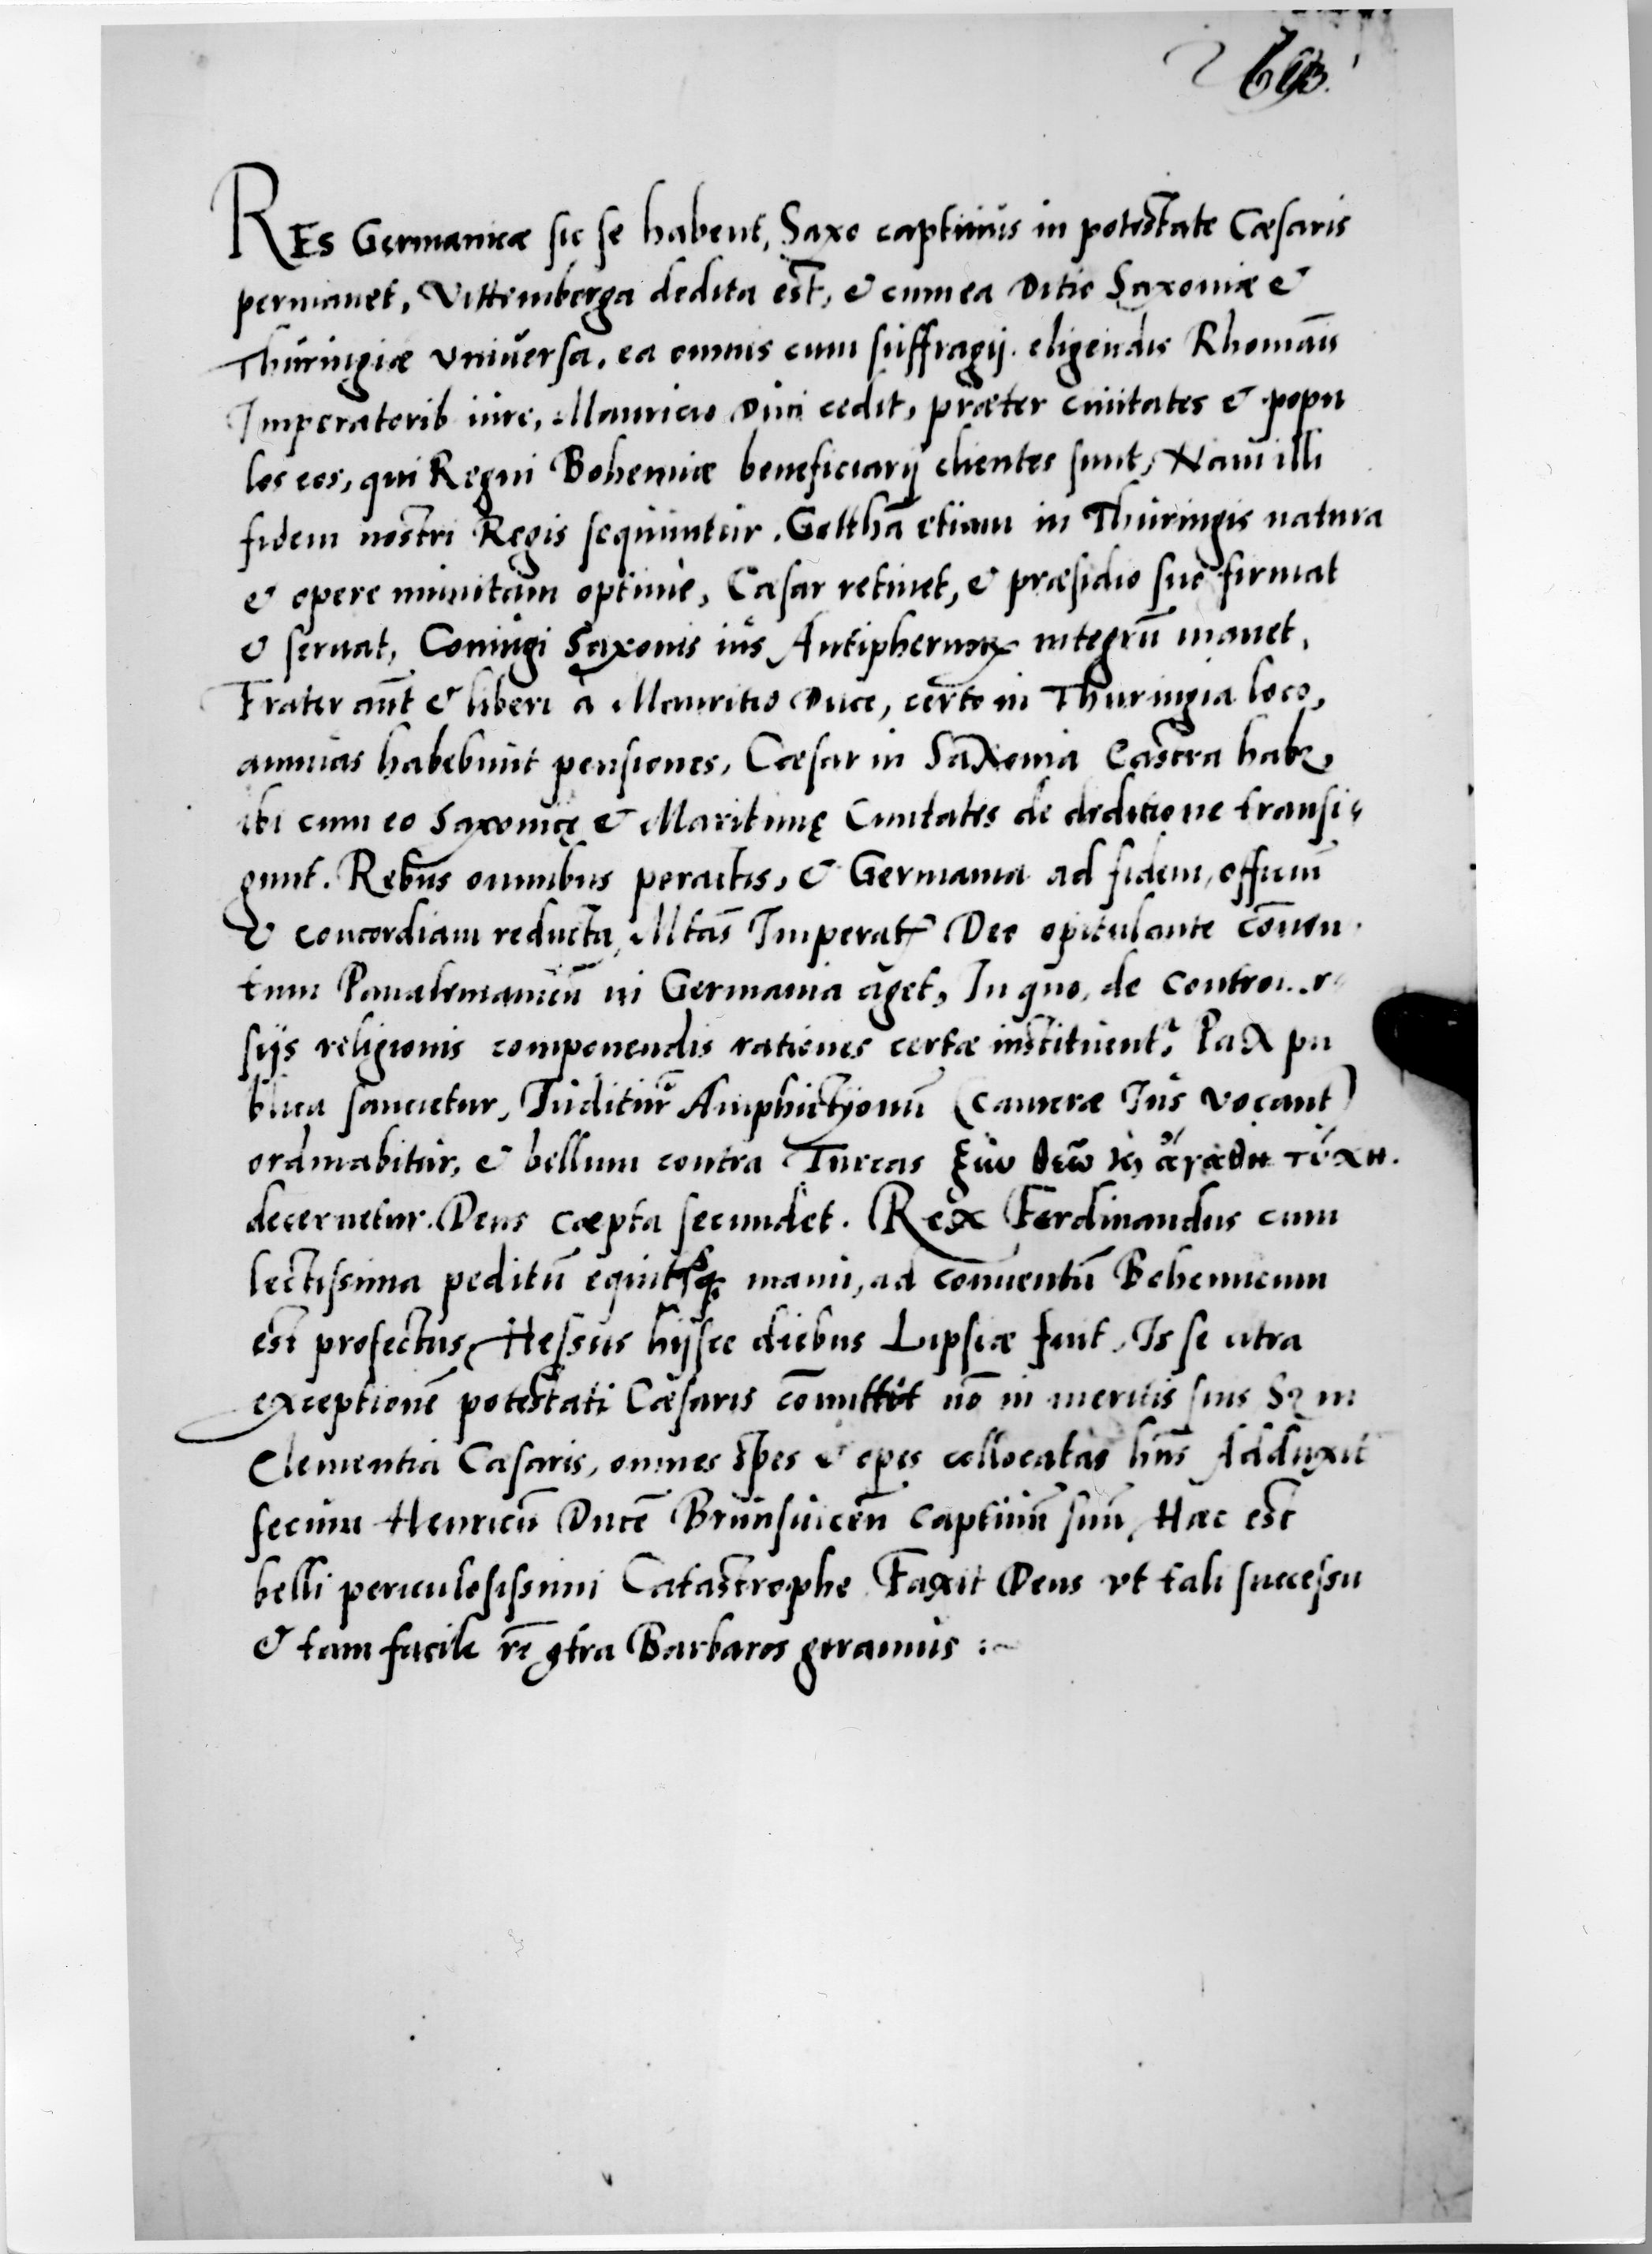 REs Germanicæ sic se habent, Saxo captiuus in potestate Cæsaris
permanet, Vittemberga dedita est, & cum ea Ditio Saxoniæ &
Thuringiæ vniuersa, ea omnis cum suffragij. eligendis Rhomāis
Imperatorib iure, Mauricio Duci cedit, præter ciuitates & popu
los eos, qui Regni Bohemiæ beneficiarij clientes sunt, Nam illi
fidem nostri Regis sequuntur. Gotthā etiam in Thuringis natura
& opere munitam optime, Cæsar retinet, & præsidio suo firmat
& seruat, Coniugi Saxonis ius Antiphernoꝝ integrū manet.
Frater aūt & liberi à Mauritio Duce, certo in Thuringia loco,
annuas habebunt pensiones, Cæsar in Saxonia Castra habꝫ,
ibi cum eo Saxonicę & Maritimę Ciuitates de deditione transi-
gunt. Rebus omnibus peractis, & Germania ad fidem, officiū
& concordiam reducta, Mtas̄ Imperat. Deo opitulante cōuen
tum Panalemanicū in Germania aget, In quo, de controuer
sijs religionis componendis rationes certæ instituent. Pax pu
blica sancietur, Iuditiū Amphictyonū (cameræ Ius vocant)
ordinabitur, & bellum contra Turcas ξὺω θεω̃ κ̀ ἀγαθη τύχη.
decernetur. Deus cæpta secundet. Rex Ferdinandus cum
lectissima peditū equitūqꝫ manu, ad conuentū Bohemicum
est profectus, Hessus hijsce diebus Lipsiæ fuit, Is se citra
exceptionē potestati Cæsaris cōmittit nō in meritis suis Sꝫ in
Clementia Cæsaris, omnes spes & opes collocatas hns Adduxit
secum Henricū Ducē Brunsuicen̄ captiuū suū, Hæc est
belli periculosissimi Catastrophe. Faxit Deus vt tali successu
& tam facile rē ꝯtra Barbaros geramus :~